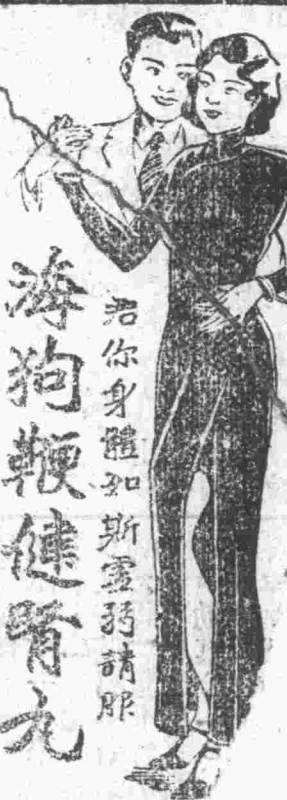 若你身體如斯虛弱請服
海狗鞭健腎丸